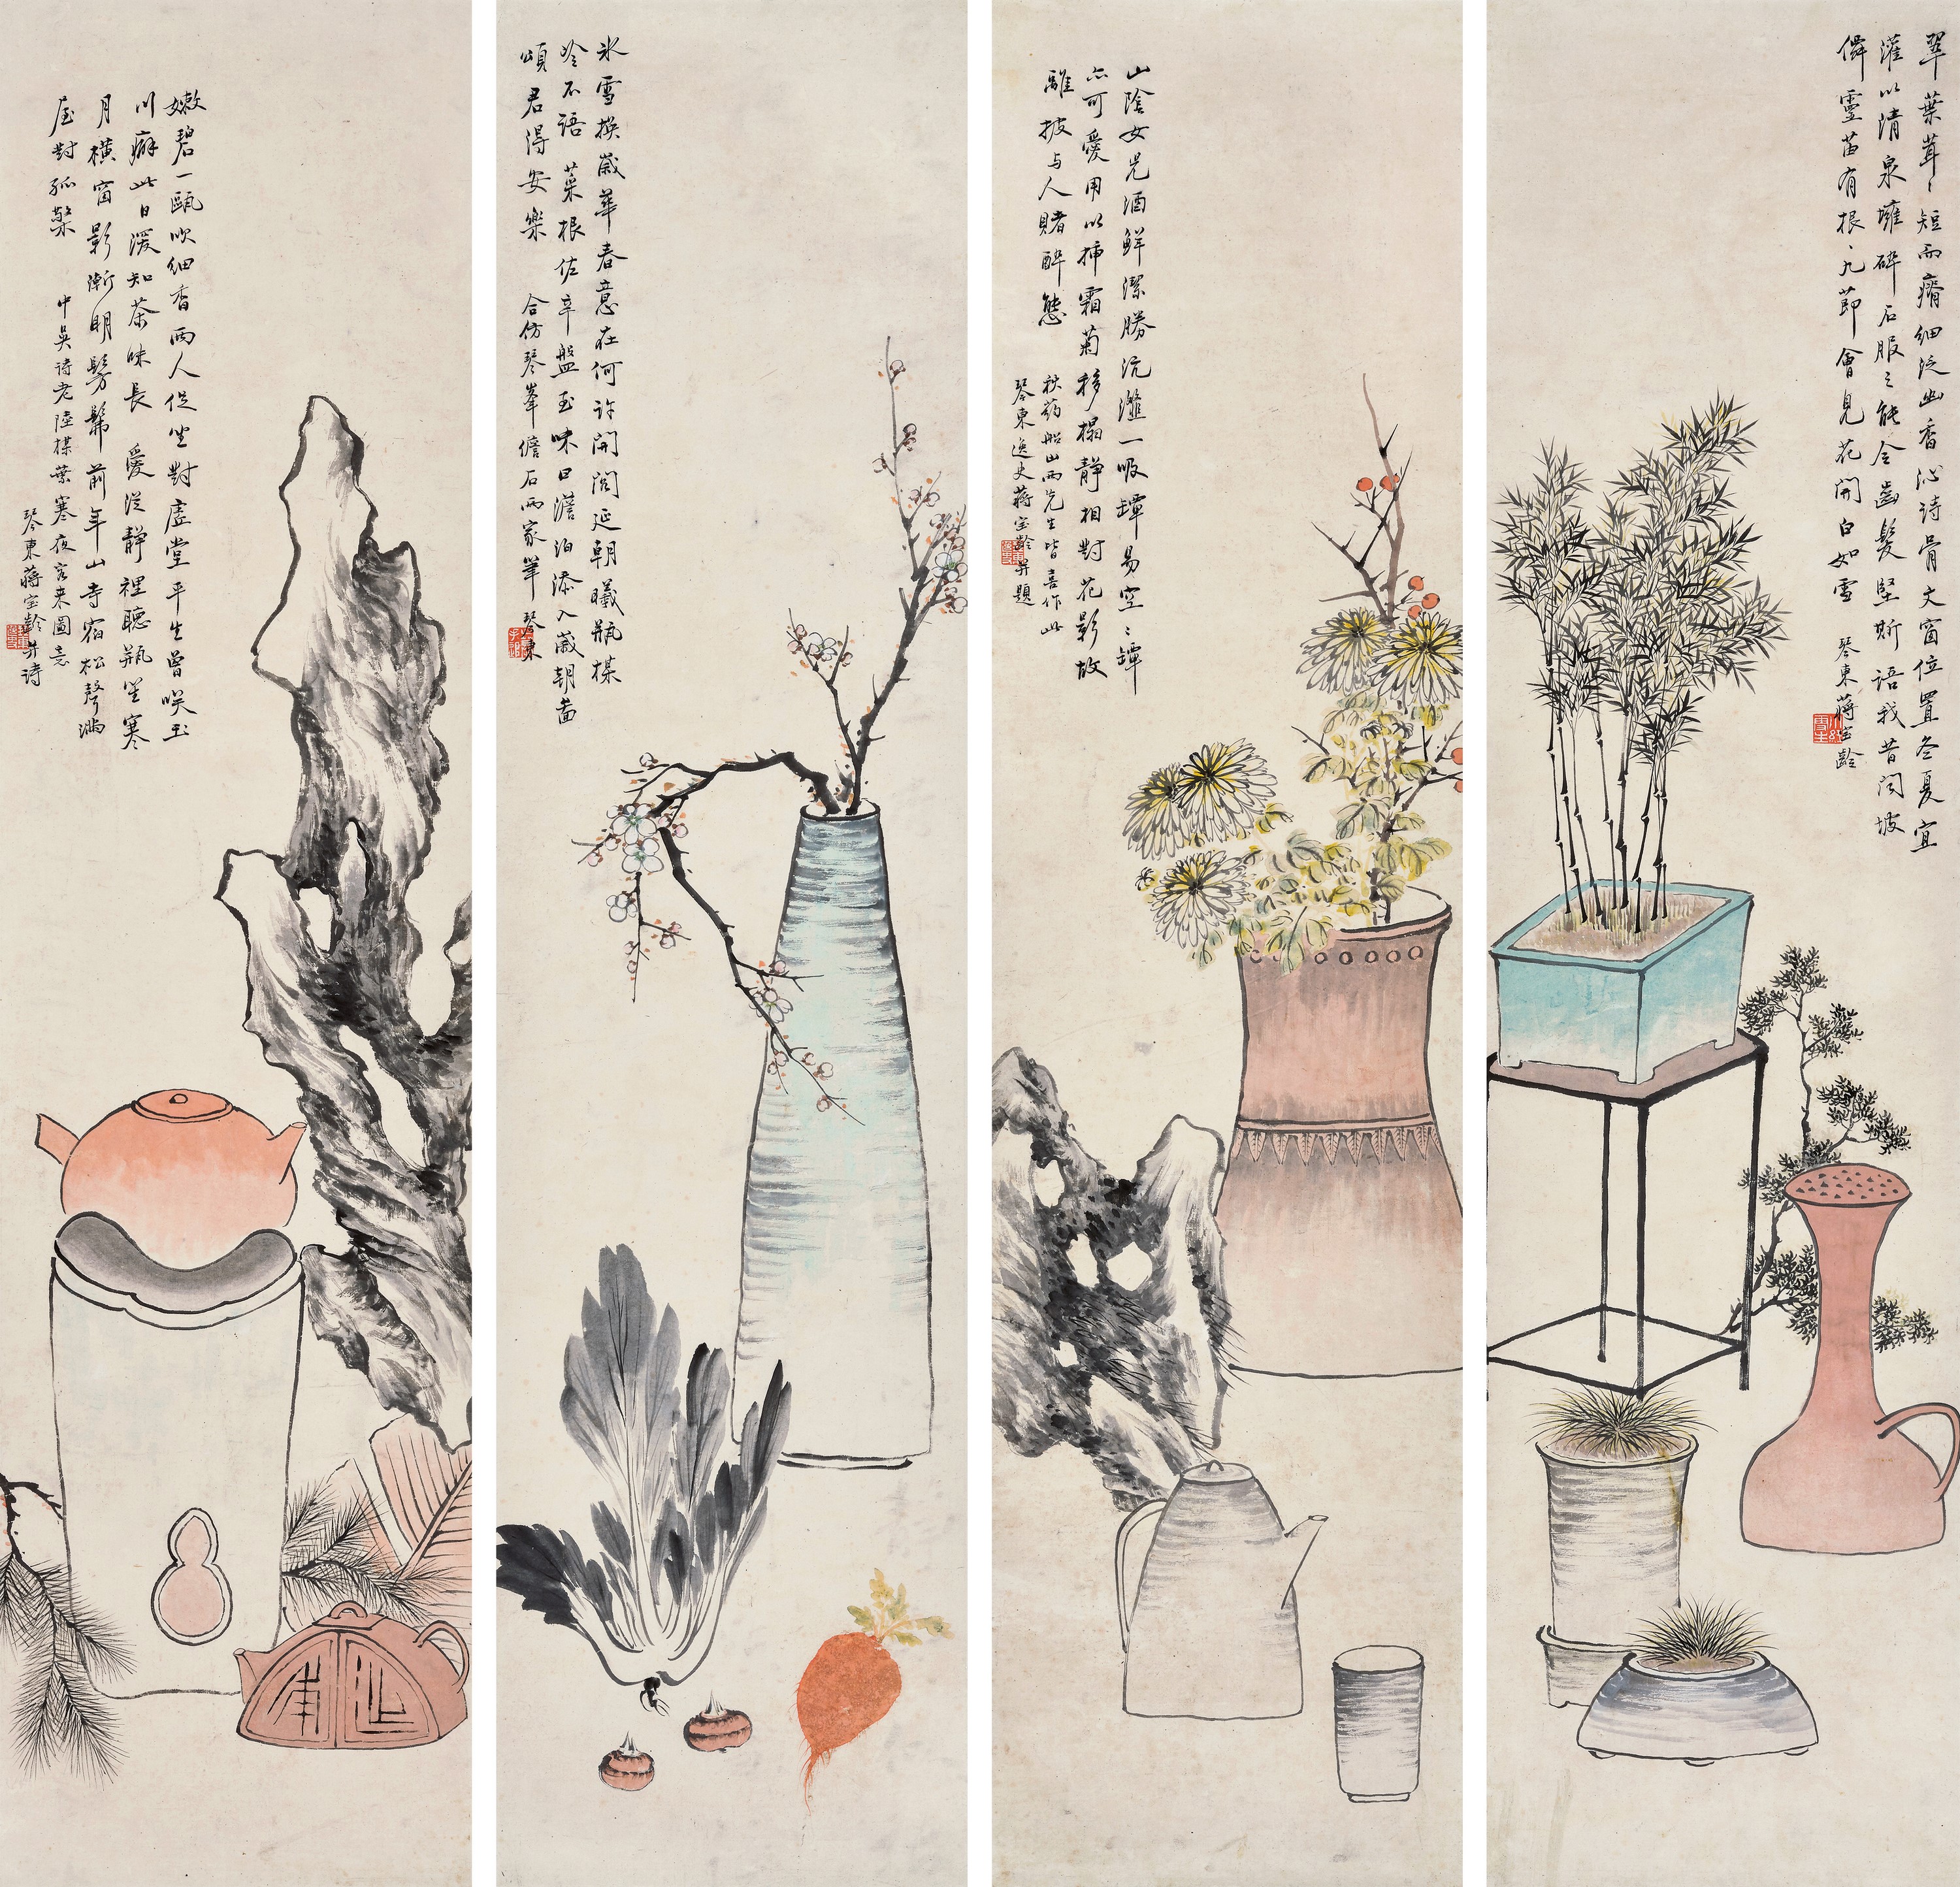 翠葉茸〻短而瘠細泛幽香沁诗骨文窗位置冬夏宜
灌以清泉壅碎石服之能令齒髮堅斯语我昔闻坡
僊靈苗有根〻九節會見花開白如雪
琴東蔣宝齡
山陰女兒酒鮮潔勝沆瀣一吸罈易空〻罈
亦可愛用以插霜菊移榻靜相對花影故
離披与人賭醉態
秋药船山两先生皆喜作此
琴東逸史蔣宝齡并題
氷雪换歲華春意在何许開閤延朝曦瓶楳
冷不语菜根佐辛盤至味日澹泊添入歲朝啚
頌君得安樂
合仿琴峯儋石两家筆 琴東
嫩碧一甌吹细香两人促坐對虚堂平生曾咲玉
川癖此日漫知茶味長 愛從靜裡聽瓶笙寒
月横窗影漸明髣髴前年山寺宿松聲滿
屋對孤檠
中吴诗老陸楳葉寒夜客来圖意
琴東蔣宝齡并诗